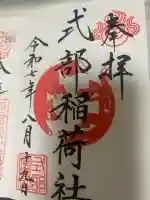 奉拝
式部稲荷社
令和七年八月十九日